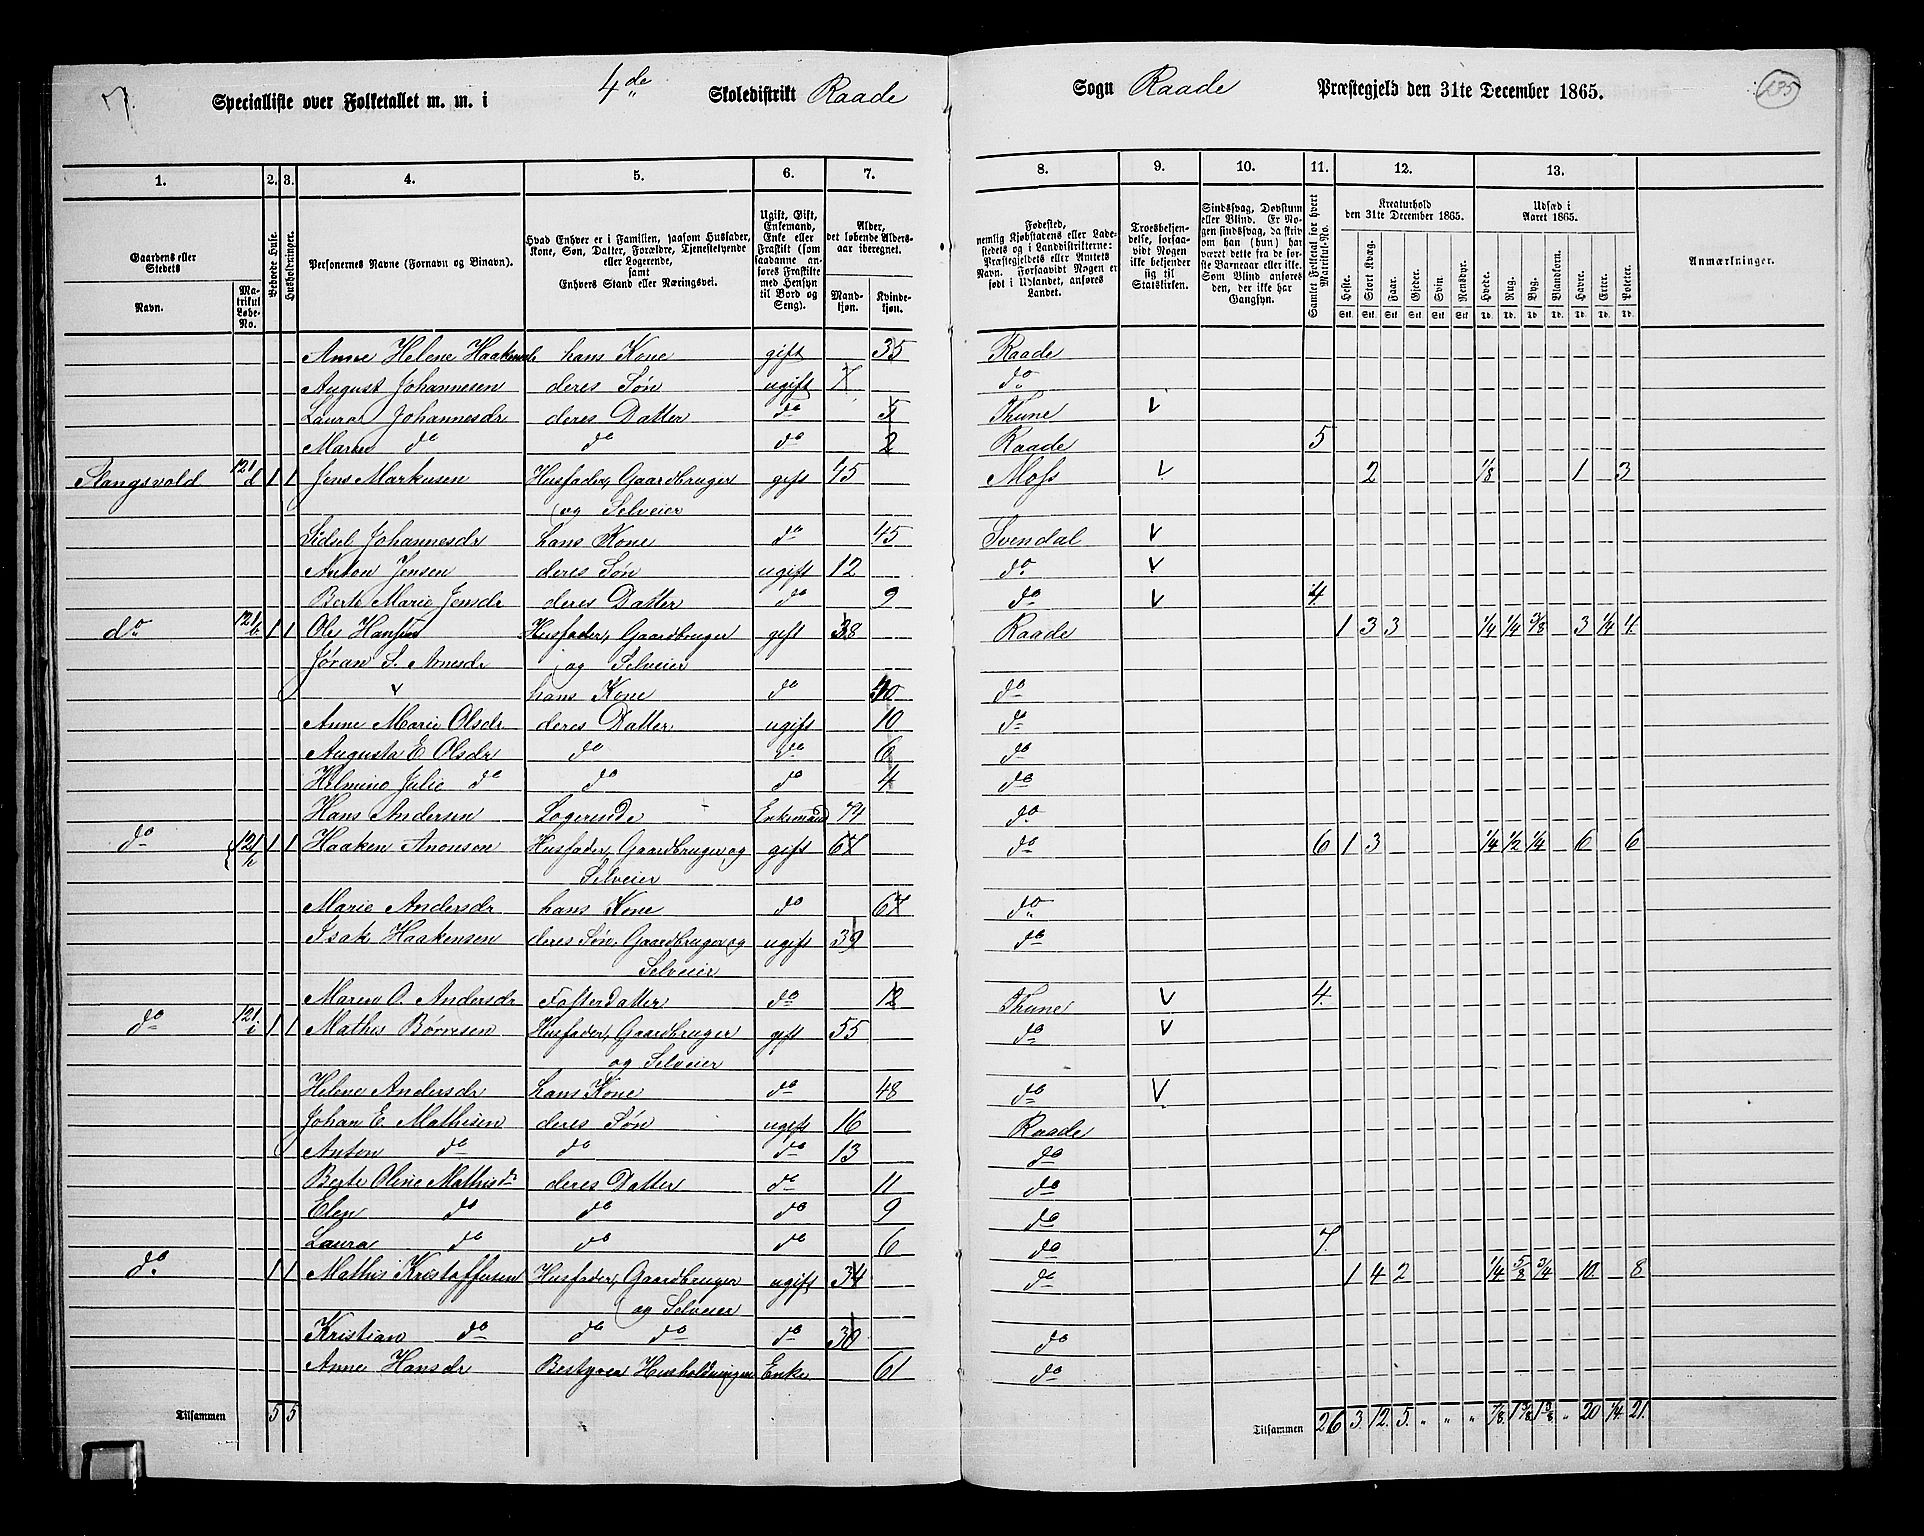 7.
Specialliste over Folketallet m. m. i 4de Skoledistrikt Raade Sogn Raade Præstegjeld den 31te December 1865. 135
1. 2. 3. 4. 5. 6. 7. 8. 9. 10. 11. 12. 13.
Gaardens eller Stedets
Navn. Matrikul Løbe-No.
Beboede Huse.
Husholdninger.
Personernes Navne (Fornavn og Binavn).
Hvad Enhver er i Familien, saasom Husfader, Kone, Søn, Datter, Forældre, Tjenestetyende eller Logerende, samt Enhvers Stand eller Næringsvei.
Ugift, Gift, Enkemand, Enke eller Fraskilt (som saadanne anføres Fraskilte med Hensyn til Bord og Seng).
Alder, det løbende Aldersaar iberegnet.
Mandkjøn. Kvindekjøn.
Fødested, nemlig Kjøbstadens eller Ladestedets eller i Landdistrikterne: Præstegjeldets eller Amtets Navn. Forsaavidt Nogen er født i Udlandet, anføres Landet.
Troesbekjendelse, forsaavidt Nogen ikke bekjender sig til Statskirken.
Sindssvag, Døvstum eller Blind. Er Nogen sindssvag, da skrives om han (hun) har været dette fra de første Barneaar eller ikke. Som Blind anføres den, der ikke har Gangsyn.
Samlet Folketal for hvert Matrikul-No.
Kreaturhold den 31te December 1865.
Heste. Stort Kvæg. Faar. Gjeder. Svin. Rensdyr.
Udsæd i Aaret 1865.
Hvede. Rug. Byg. Blandkorn. Havre. Erter. Poteter.
Anmærkninger.
Anne Helene Haakensdr hans Kone gift 35 Raade
August Johannesen deres Søn ugift 7 do
Laura Johannesdr deres Datter do 5 Thune v
Maren do do do 2 Raade 5
Slangsvold 121/d 1 1 Jens Markusen Husfader, Gaardbruger gift 45 Moss v 2 1/8 1 3
og Selveier
Sidsel Johannesdr hans Kone do 45 Svendal v
Anton Jensen deres Søn ugift 12 do v
Berte Marie Jensdr deres Datter do 9 do v 4.
do 121/b 1 1 Ole Hansen Husfader, Gaardbruger gift 38 Raade 1 3 3 1/4 1/4 3/8 3 1/4 4.
Jøran S. Arnesdr og Selveier
v hans Kone do 40 do
Anne Marie Olsdr deres Datter ugift 10 do
Augusta E Olsdr do do 6 do
Helmine Julie do do do 4 do
Hans Andersen Logerende Enkemand 74 do
do 121/h 1 1 Haaken Anonsen Husfader, Gaardbruger og gift 67 do 6 1 3 1/4 1/2 1/4 6 6
Selveier
Marie Andersdr hans Kone do 67 do
Isak Haakensen deres Søn, Gaardbruger og ugift 39 do
Selveier
Maren O. Andersdr Fosterdatter do 12 Thune v 4.
do 121/i 1 1 Mathis Børresen Husfader, Gaardbruger gift 55 do v
og Selveier
Helene Andersdr hans Kone do 48 do v
Johan E. Mathisen deres Søn ugift 16 Raade
Anton do do do 13 do
Berte Oline Mathisdr deres Datter do 11 do
Elen do do do 9 do
Laura do do do 6 do 7.
do 1 1 Mathis Kristoffersen Husfader, Gaardbruger ugift 34 do 1 4 2 1/4 5/8 3/4 10. 8
og Selveier
Kristian do do do do 30 do
Anne Hansdr Bestyrer Husholdningen Enke 61 do
Tilsammen 5 5 Tilsammen 26 3. 12. 5. " " " 7/8. 1 3/8 1 3/8 " 20 1/4. 21.